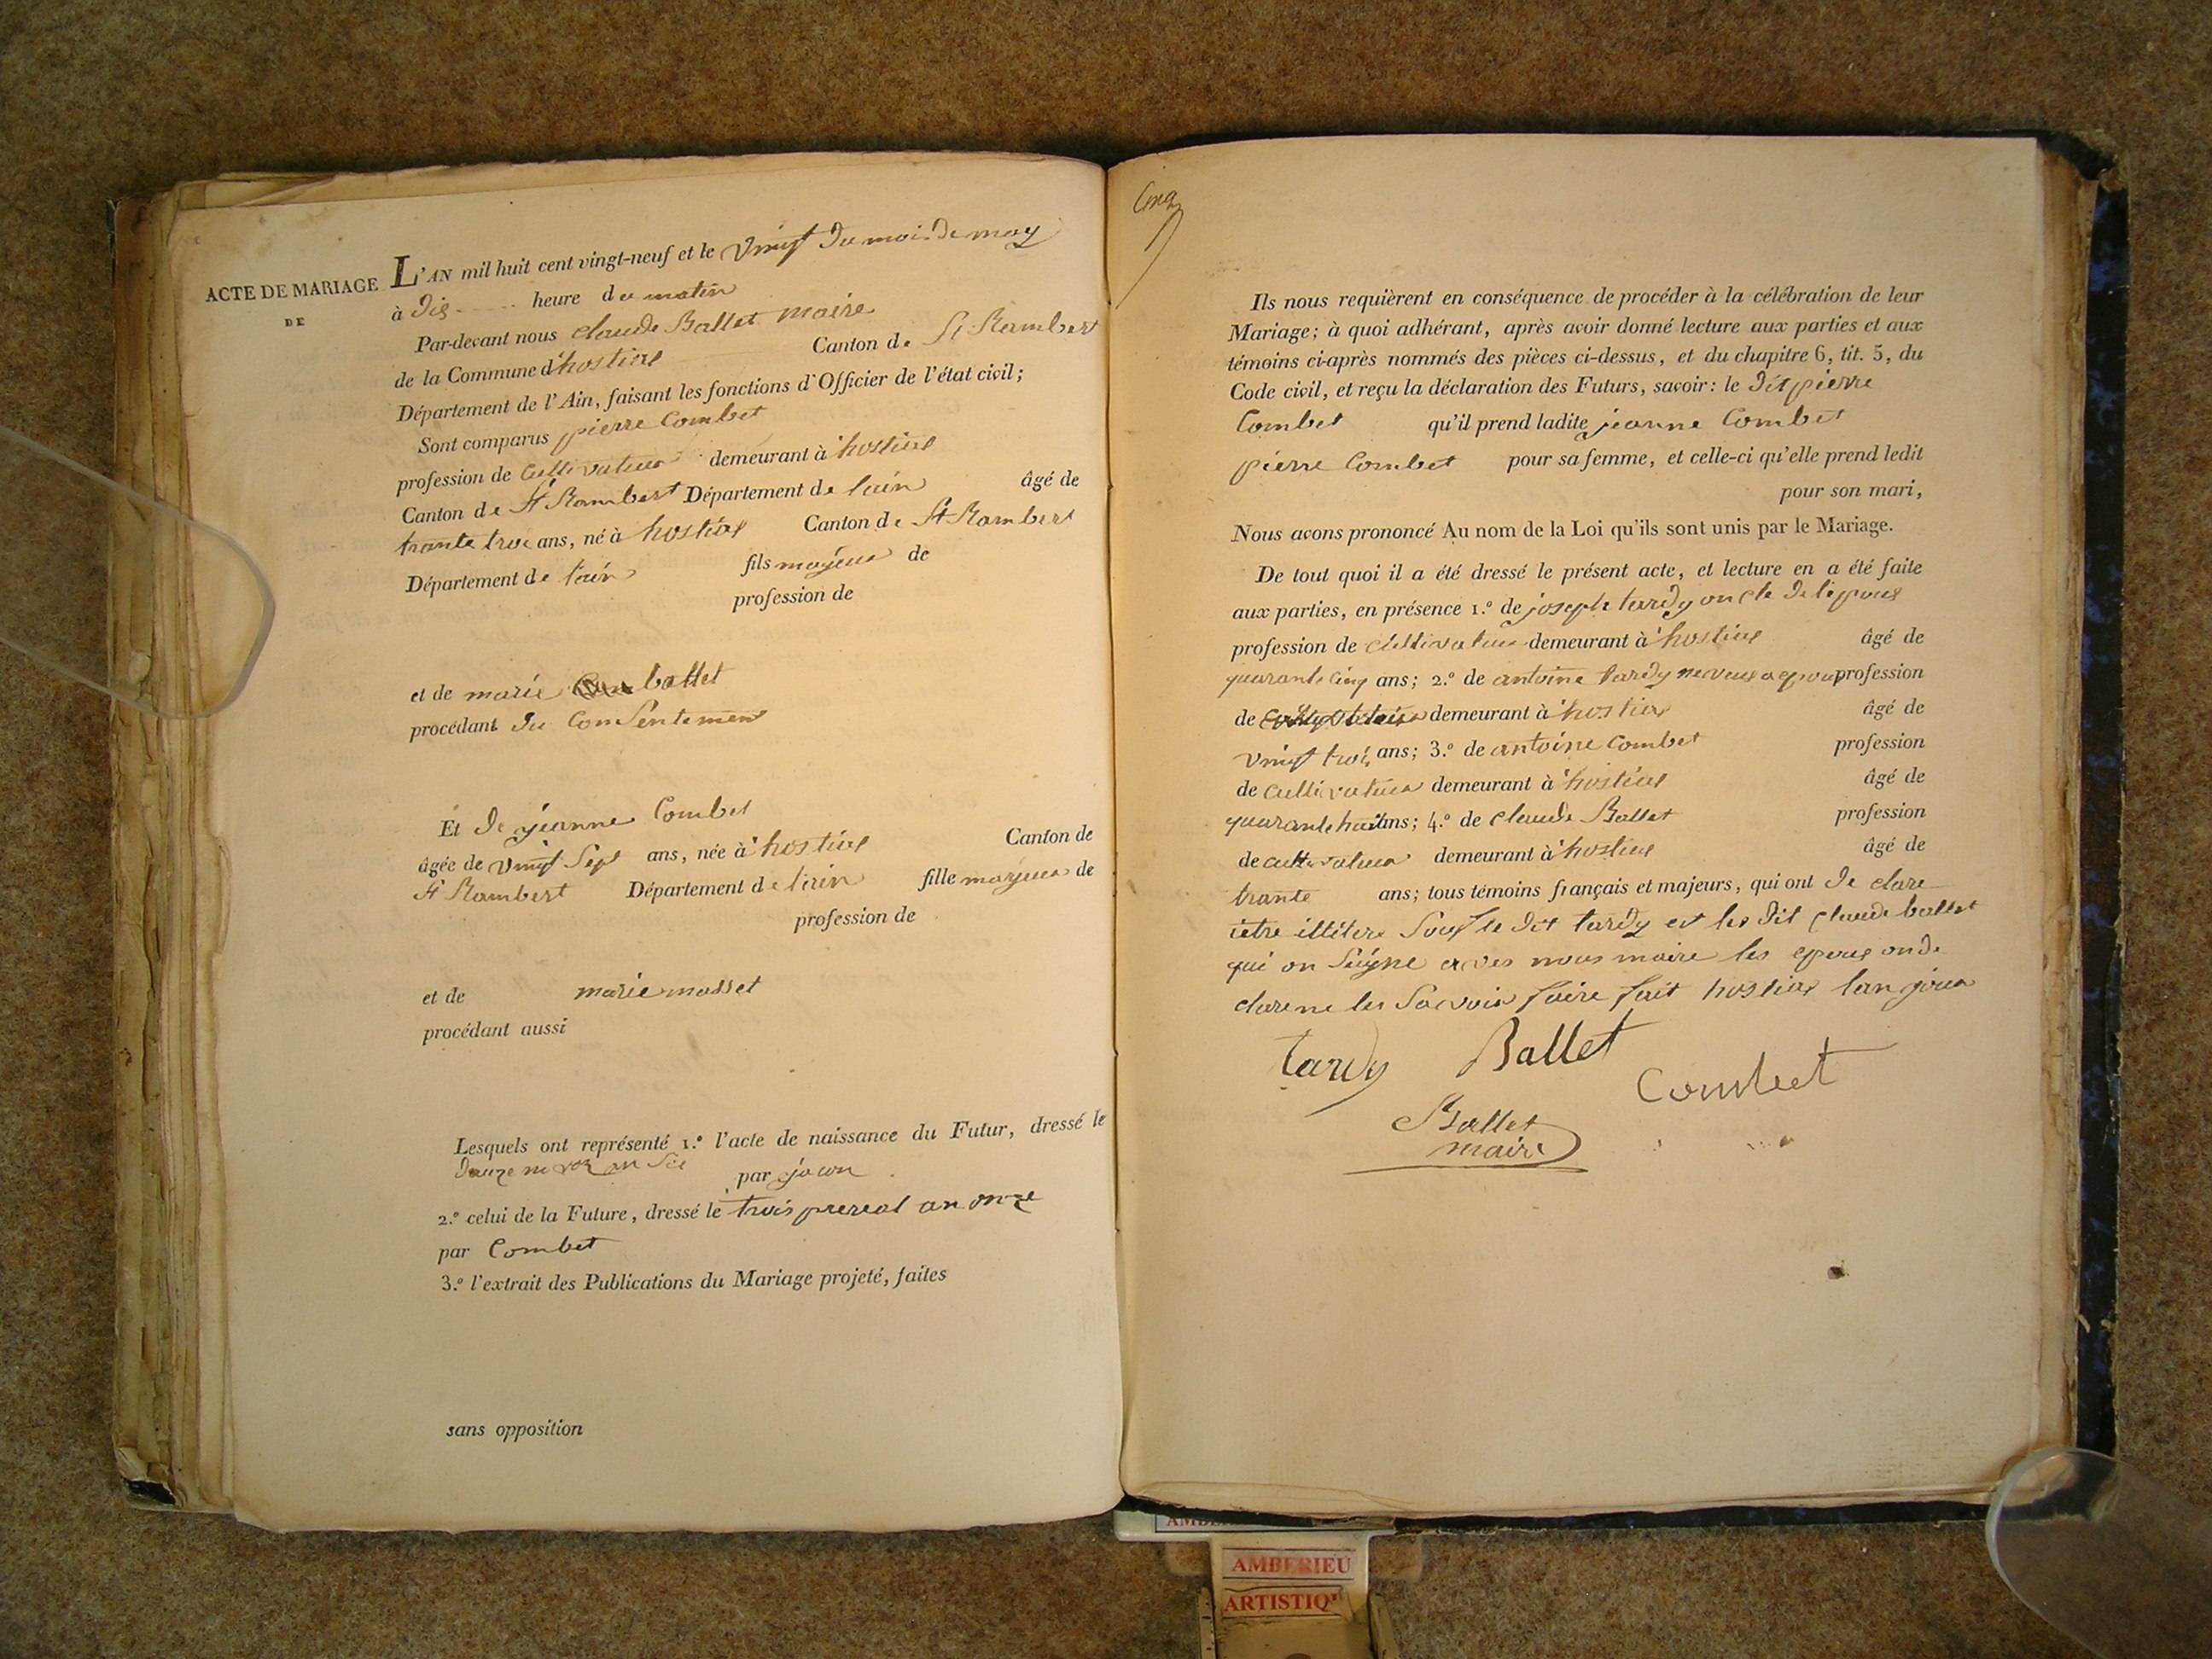 ACTE DE MARIAGE
DE
L'AN mil huit cent vingt-neuf et le vingt du mois de may
à dix heure du matin
Par-devant nous claude Ballet maire
de la Commune d'hostias Canton de St Rambert
Département de l'Ain, faisant les fonctions d'Officier de l'état civil;
Sont comparus pierre Combet
profession de cultivateur demeurant à hostias
Canton de St Rambert Département de lain âgé de
trante trois ans, né à hostias Canton de St Rambert
Département de lain fils majeur de
profession de
et de marie ballet
procédant du Consentement
Et de jeanne Combet
âgée de vingt Sept ans, née à hostias Canton de
St Rambert Département de lain fille majeur de
profession de
et de marie masset
procédant aussi
Lesquels ont représenté 1.° l'acte de naissance du Futur, dressé le
an par
2.° celui de la Future, dressé le trois prereal an onze
par Combet
3.° l'extrait des Publications du Mariage projeté, faites
sans opposition
Cinq
Ils nous requièrent en conséquence de procéder à la célébration de leur
Mariage; à quoi adhérant, après avoir donné lecture aux parties et aux
témoins ci-après nommés des pièces ci-dessus, et du chapitre 6, tit. 5, du
Code civil, et reçu la déclaration des Futurs, savoir: le dit pierre
Combet qu'il prend ladite jeanne Combet
pierre Combet pour sa femme, et celle-ci qu'elle prend ledit
pour son mari,
Nous avons prononcé Au nom de la Loi qu'ils sont unis par le Mariage.
De tout quoi il a été dressé le présent acte, et lecture en a été faite
aux parties, en présence 1.° de joseph tardy oncle de lepoux
profession de cultivateur demeurant à hostias âgé de
quarante cinq ans; 2.° de antoine tardy neveux profession
de demeurant à hostias âgé de
vingt trois ans; 3.° de antoine Combet profession
de cultivateur demeurant à hostias âgé de
quarante huit ans; 4.° de claude Ballet profession
de cultivateur demeurant à hostias âgé de
trante ans; tous témoins français et majeurs, qui ont de clare
ietre illitere Souf le dit tardy et le dit claude ballet
qui on Siigne aves nous maire les epoux on de
clare ne les Savoir faire fait hostias lan jour
tardy Ballet
Combet
Ballet
maire
AMBERIEU
ARTISTIQ